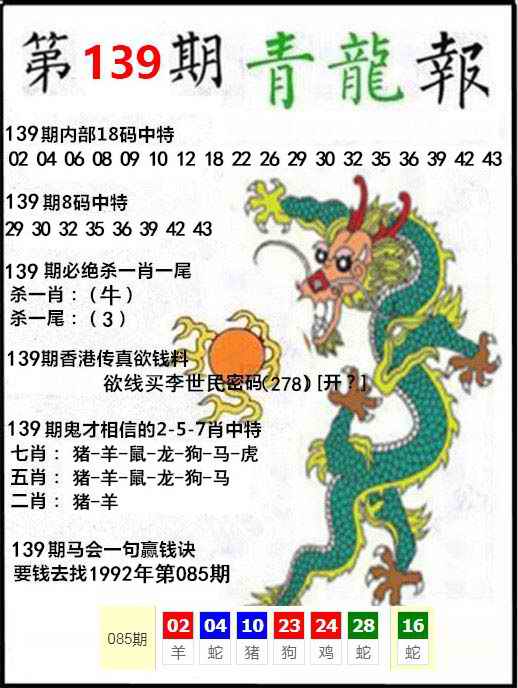 第139期青龍報
139期内部18码中特
02 04 06 08 09 10 12 18 22 26 29 30 32 35 36 39 42 43
139期8码中特
29 30 32 35 36 39 42 43
139 期必绝杀一肖一尾
杀一肖：（牛）
杀一尾：（3）
139期香港传真欲钱料
欲线买李世民密码(278) [开？]
139期鬼才相信的2-5-7肖中特
七肖： 猪-羊-鼠-龙-狗-马-虎
五肖： 猪-羊-鼠-龙-狗-马
二肖： 猪-羊
139期马会一句赢钱诀
要钱去找1992年第085期
085期 02 04 10 23 24 28 16
羊 蛇 猪 狗 鸡 蛇 蛇